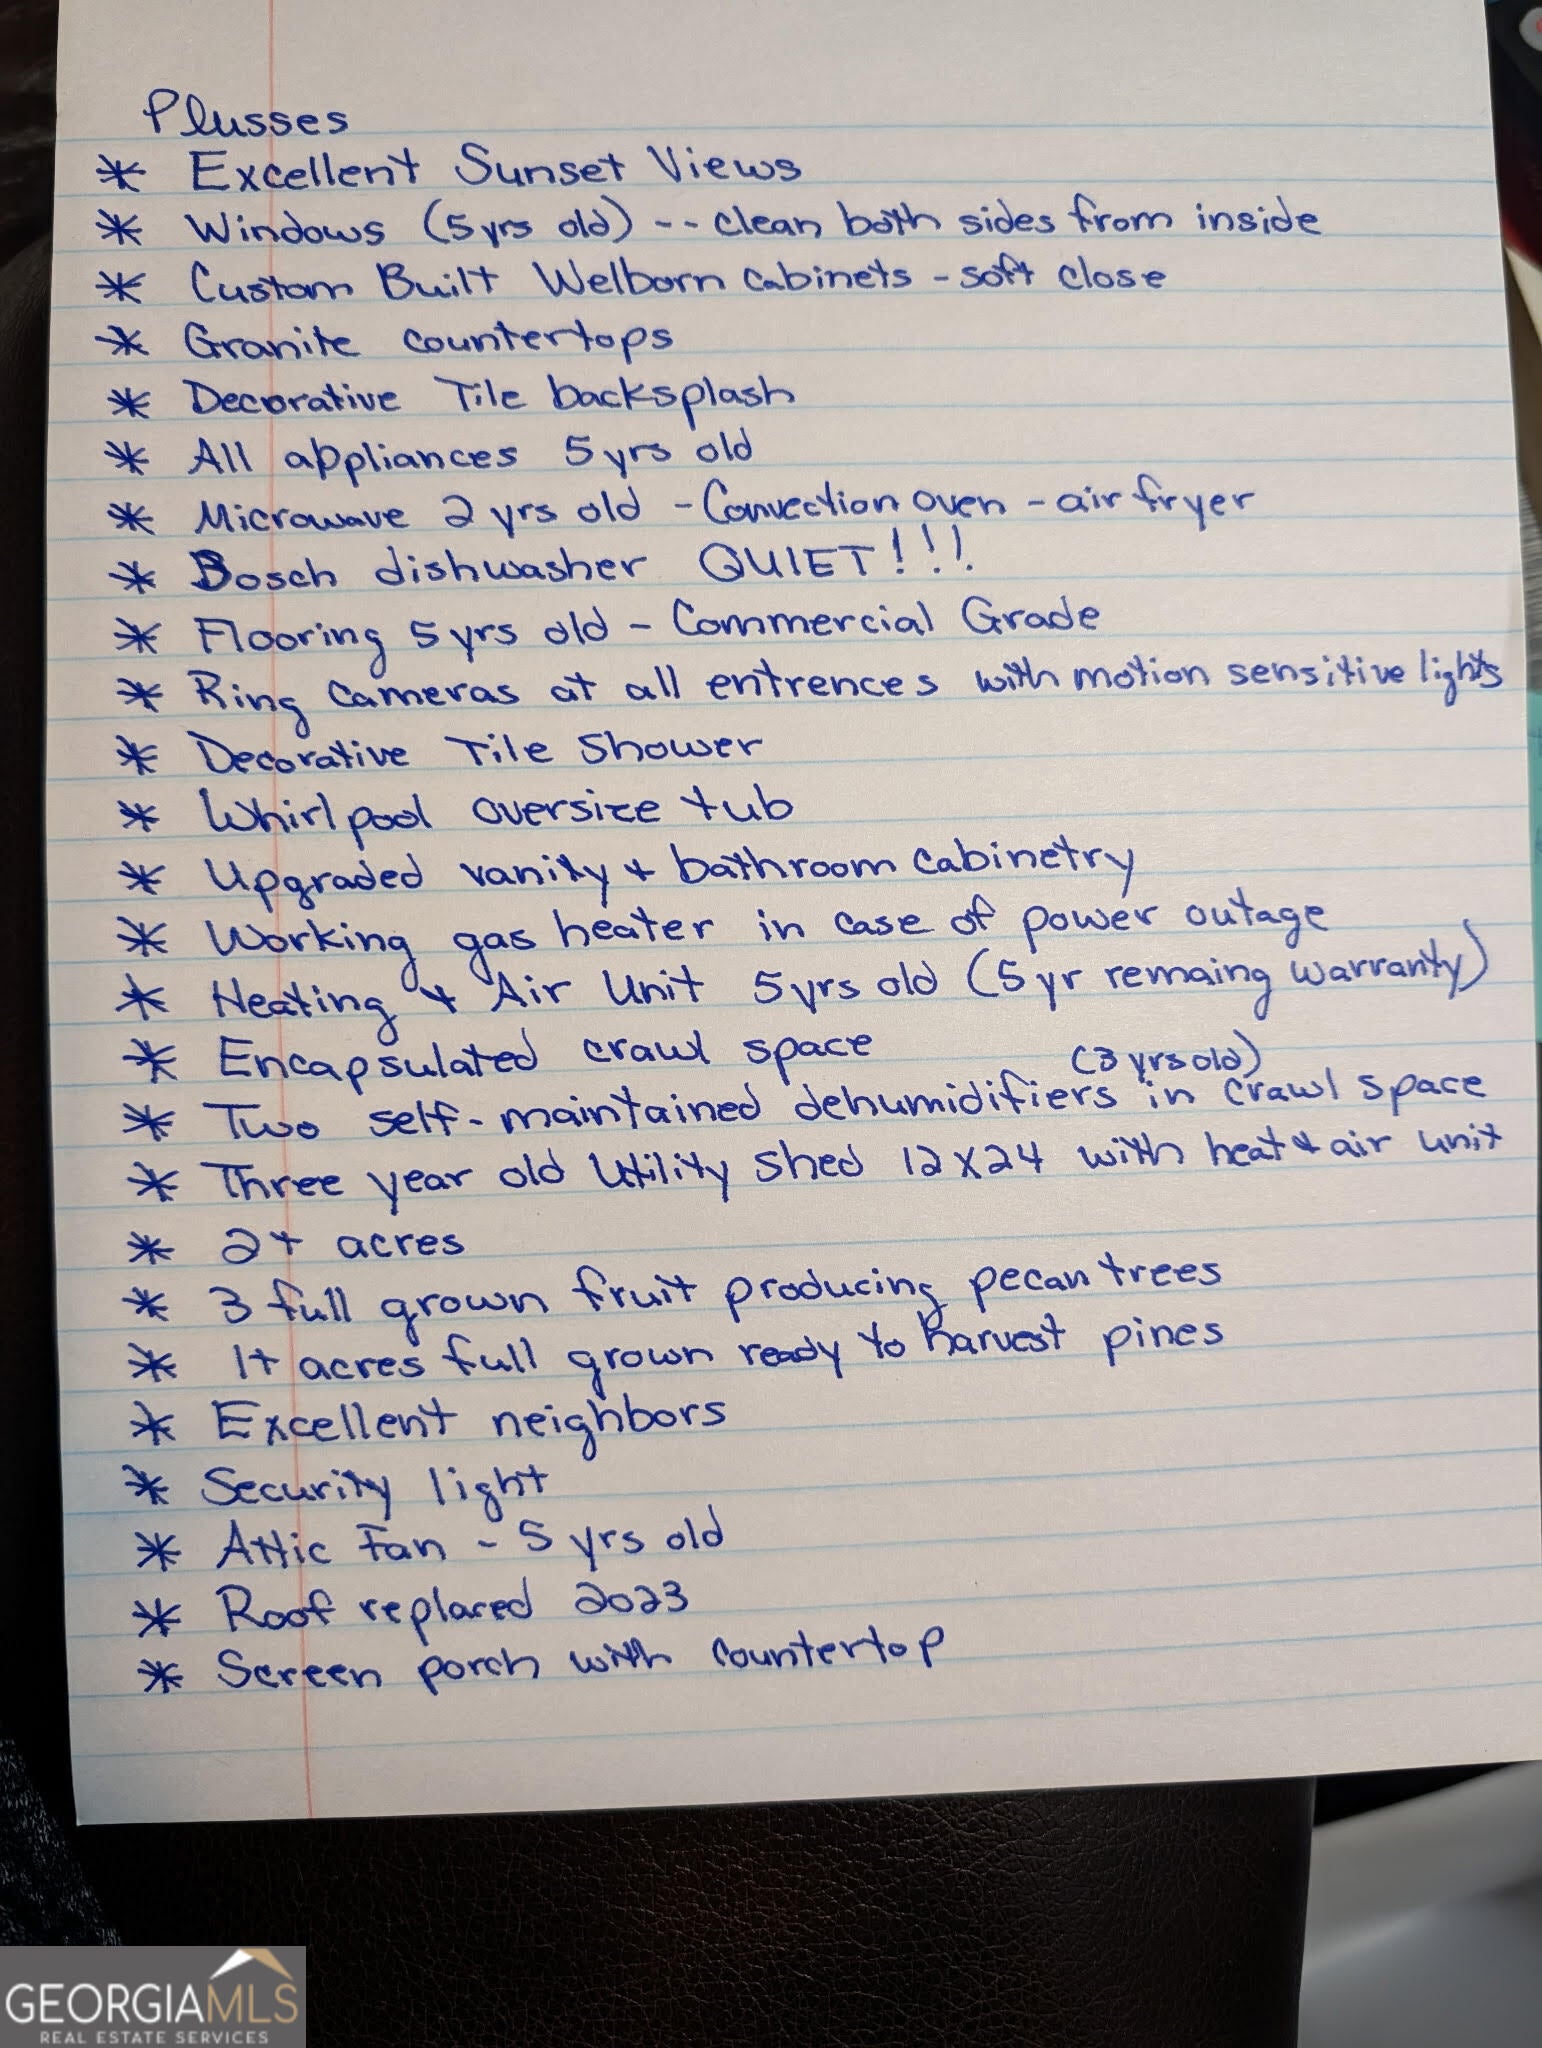 Plusses
* Excellent Sunset Views
* Windows (5 yrs old) -- clean both sides from inside
* Custom Built Welborn Cabinets - soft close
* Granite countertops
* Decorative Tile backsplash
* All appliances 5 yrs old
* Microwave 2 yrs old - Convection oven - air fryer
* Bosch dishwasher QUIET!!!
* Flooring 5 yrs old - Commercial Grade
* Ring Cameras at all entrences with motion sensitive lights
* Decorative Tile Shower
* Whirlpool oversize tub
* Upgraded vanity + bathroom cabinetry
* Working gas heater in case of power outage
* Heating + Air Unit 5yrs old (5 yr remaing warranty)
* Encapsulated crawl space
(3 yrs old)
* Two self-maintained dehumidifiers in crawl space
* Three year old Utility Shed 12x24 with heat + air unit
* 2+ acres
* 3 full grown fruit producing pecan trees
* 1+ acres full grown ready to harvest pines
* Excellent neighbors
* Security light
* Attic Fan - 5 yrs old
* Roof replaced 2023
* Screen porch with countertop
GEORGIAMLS
REAL ESTATE SERVICES